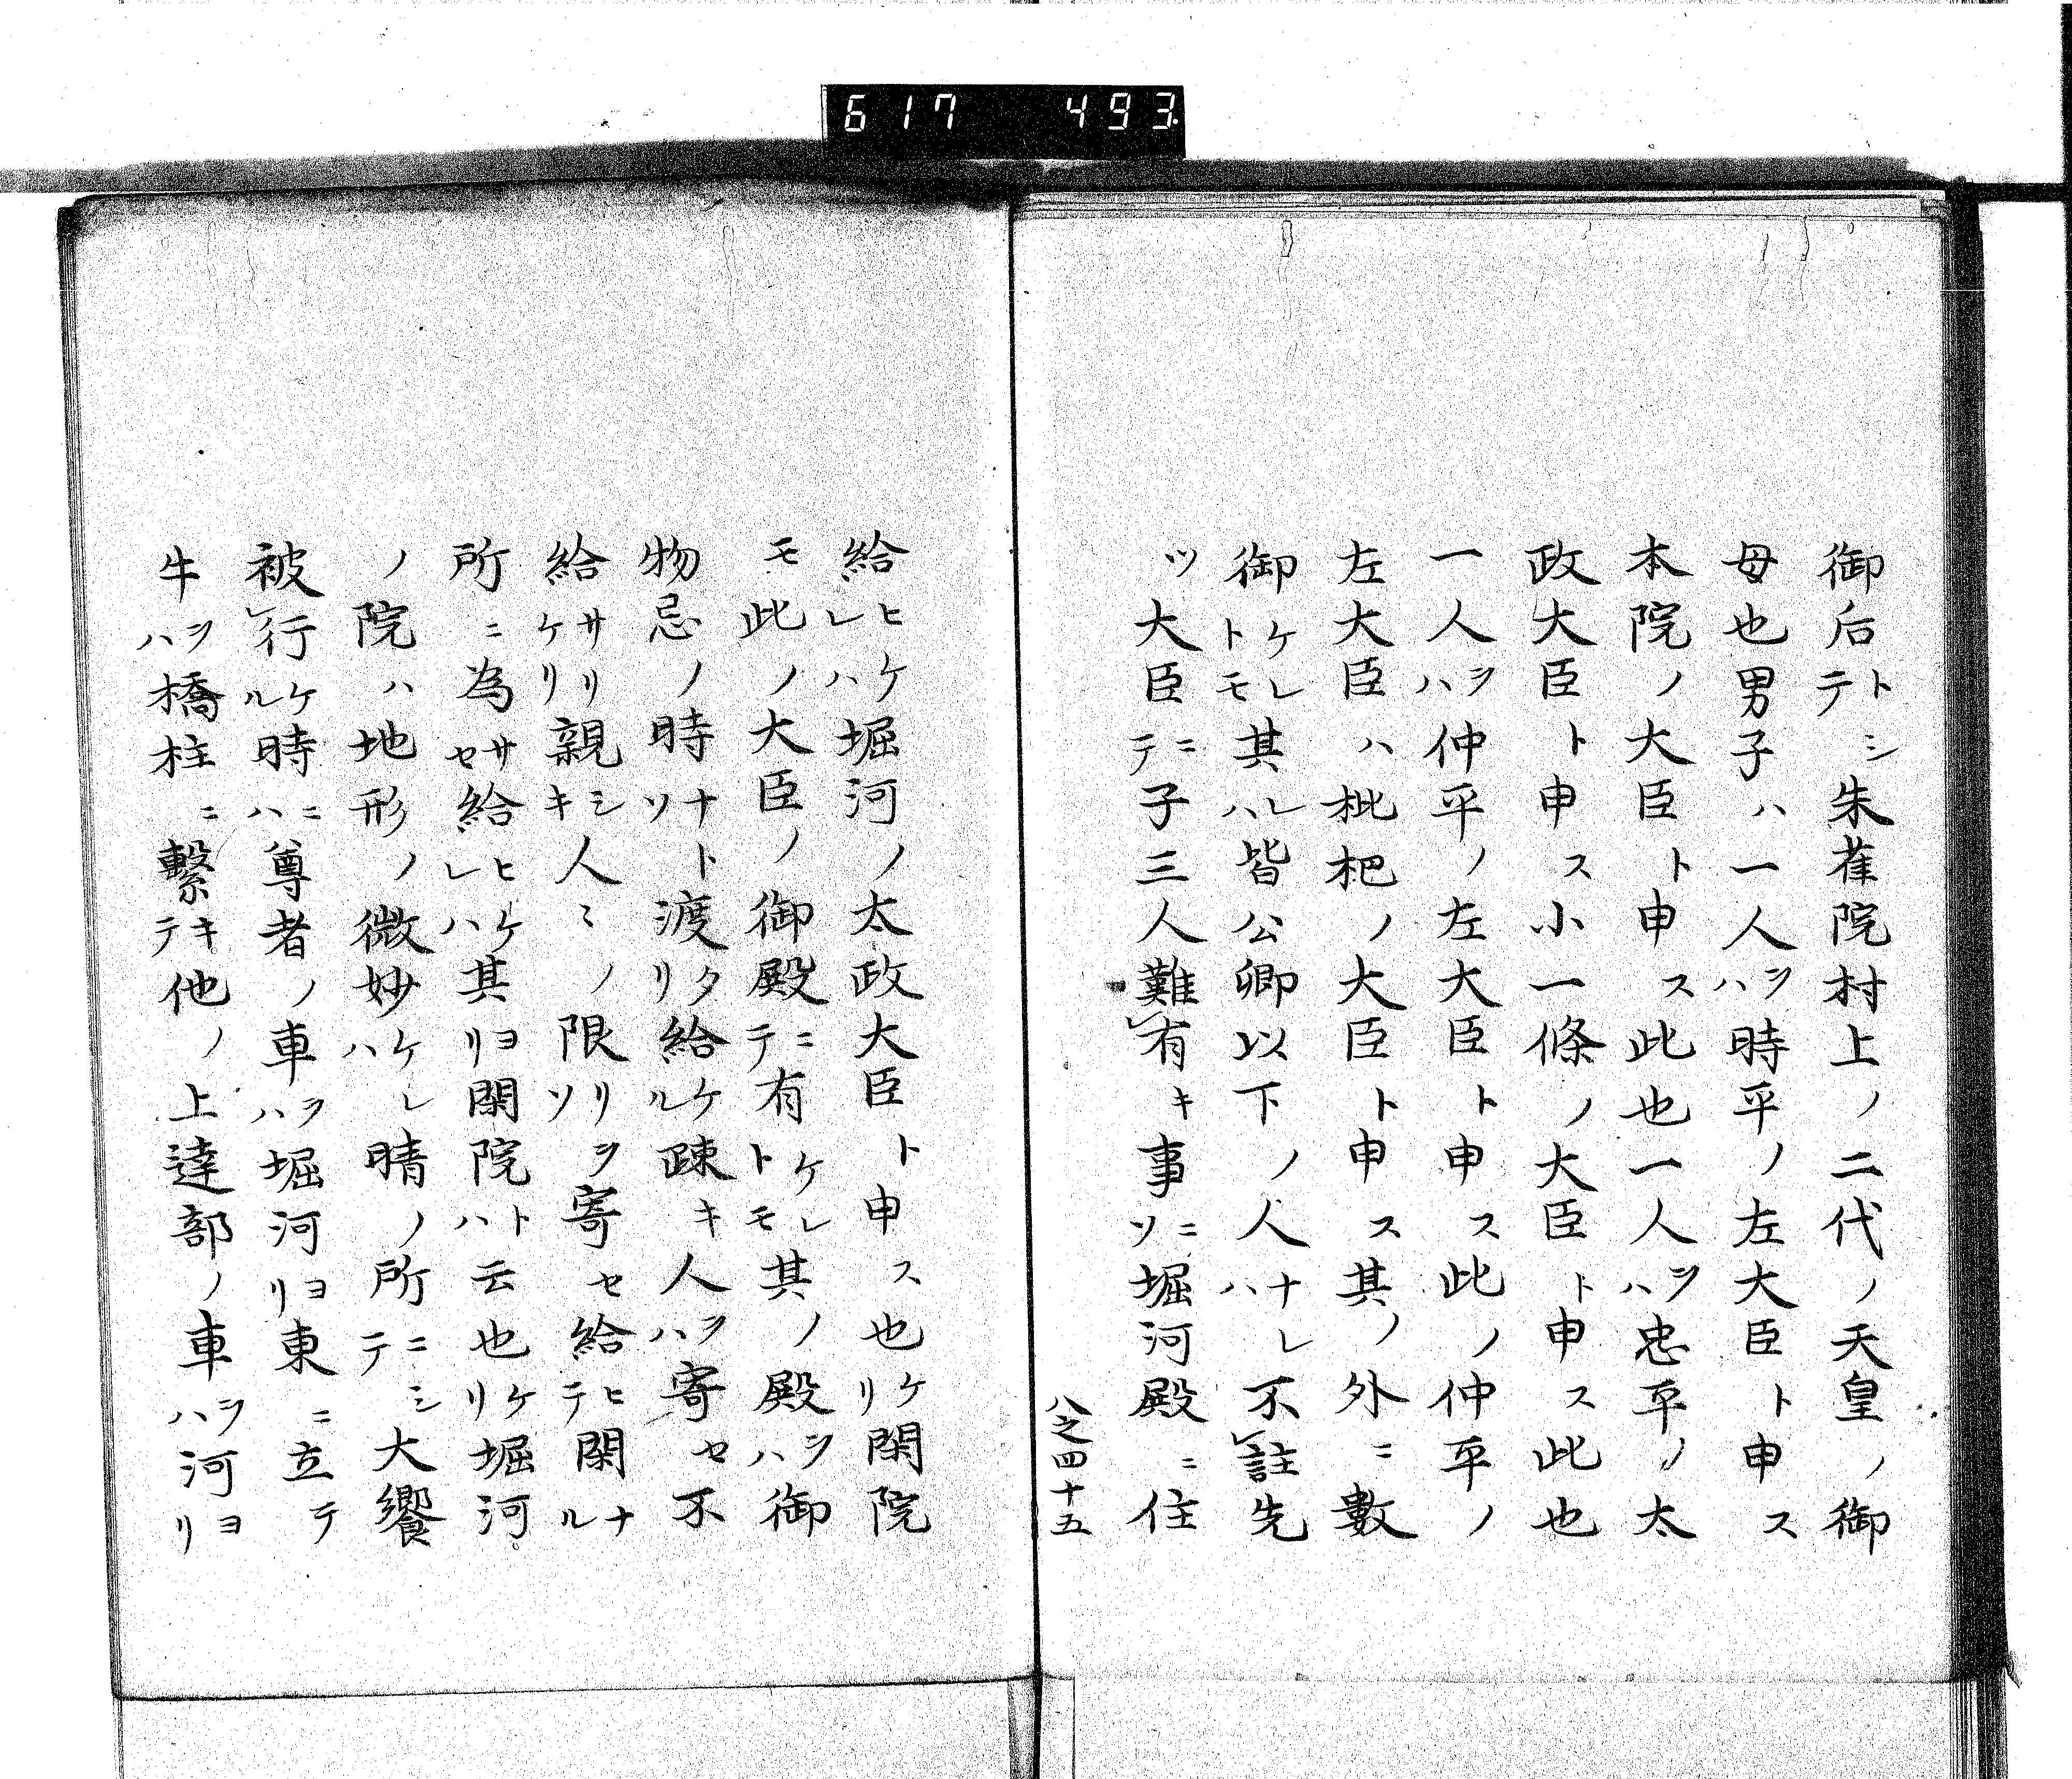 617 493
御后トシテ朱雀院村上ノ二代ノ天皇ノ御
母也男子ハ一人ヲハ時平ノ左大臣ト申ス
本院ノ大臣ト申ス此也一人ヲハ忠平ノ太
政大臣ト申ス小一條ノ大臣ト申ス此也
一人ヲハ仲平ノ左大臣ト申ス此ノ仲平ノ
左大臣ハ枇杷ノ大臣ト申ス其ノ外ニ數
御ケレトモ其レハ皆公卿以下ノ人ナレハ不㆑註先
ツ大臣ニテ子三人難㆑有キ事ニソ堀河殿ニ住
八之四十五
給ヒケレハ堀河ノ太政大臣ト申ス也ケリ閑院
モ此ノ大臣ノ御殿ニテ有ケレトモ其ノ殿ヲハ御
物忌ノ時ナトソ渡タリ給ケル疎キ人ヲハ寄セ不
給サリケリ親シキ人〻ノ限リソヲ寄セ給ヒテ閑ナル
所ニ為サセ給ヒケレハ其ヨリ閑院トハ云也ケリ堀河
ノ院ハ地形ノ微妙ケレハ晴ノ所ニシテ大饗
被㆑行ケル時ニハ尊者ノ車ヲハ堀河ヨリ東ニ立テ
牛ヲハ橋柱ニ繫キテ他ノ上達部ノ車ヲハ河ヨリ